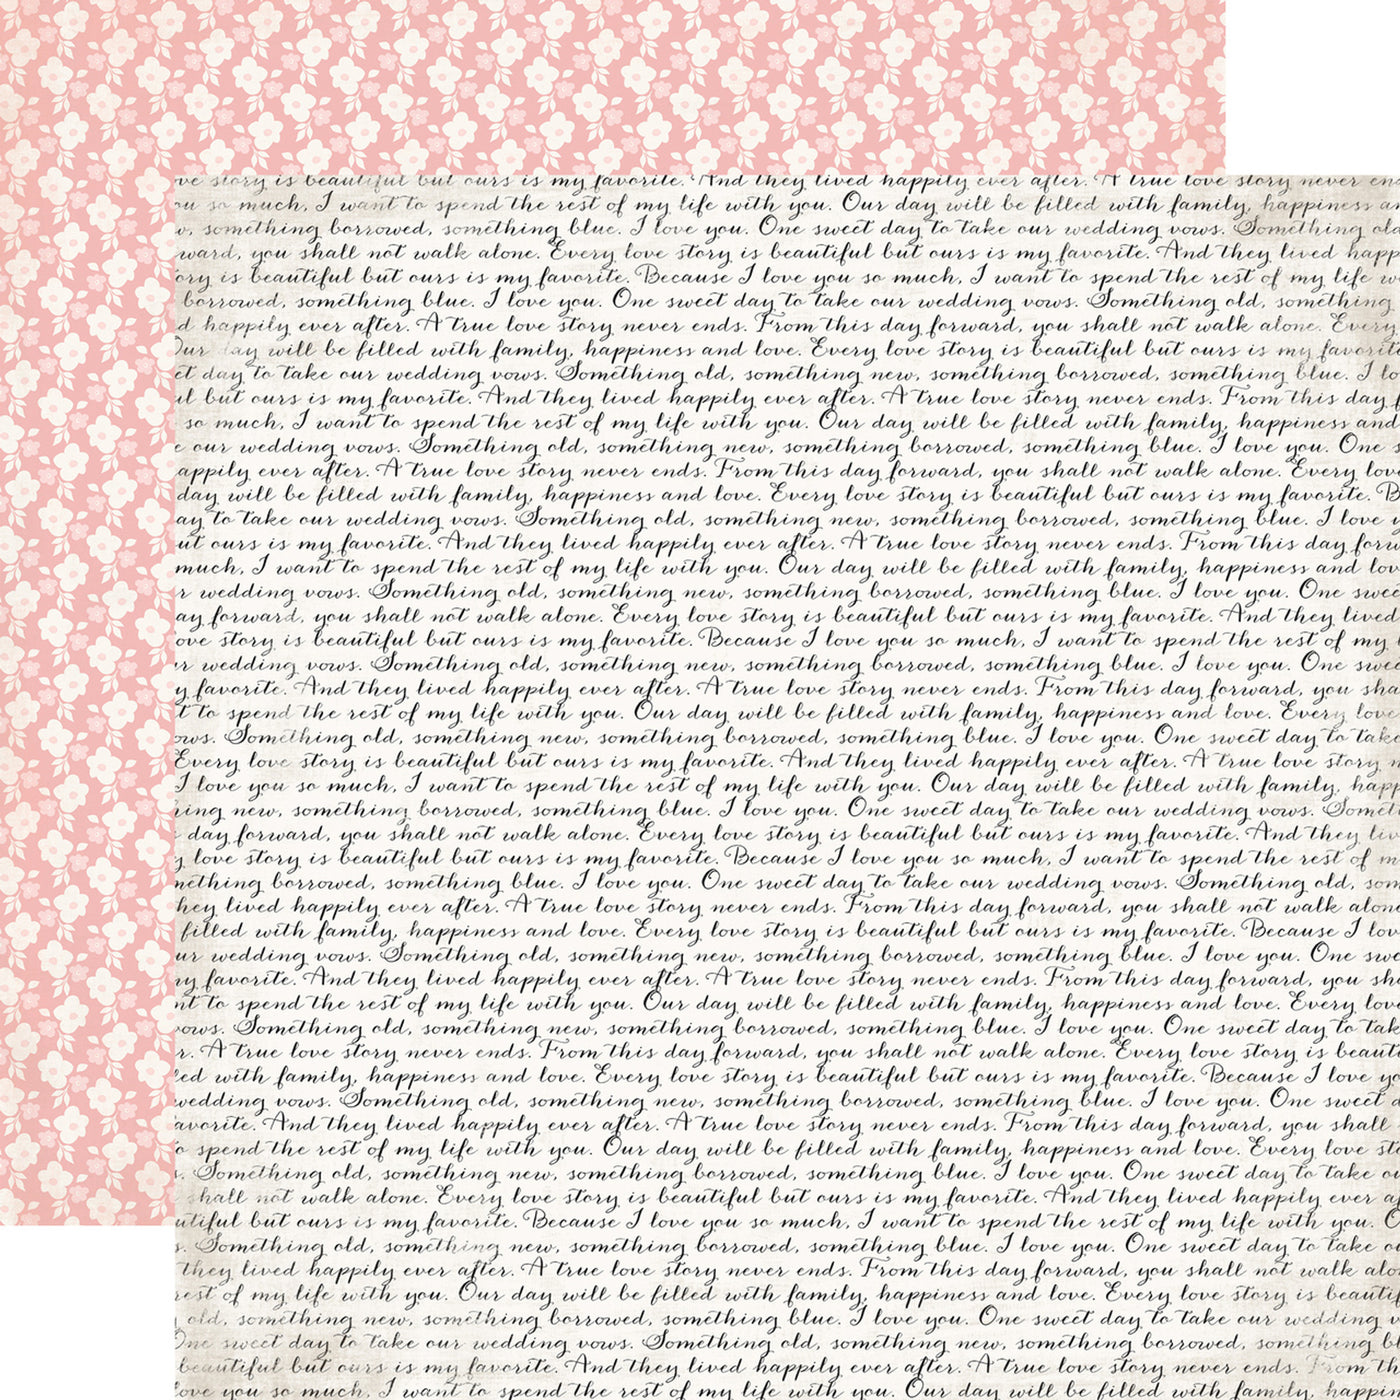 ve story is beautiful but ours is my favorite. And they lived happily ever after. A true love story never en
ou so much, I want to spend the rest of my life with you. Our day will be filled with family, happiness an
w, something borrowed, something blue. I love you. One sweet day to take our wedding vows. Something old
ward, you shall not walk alone. Every love story is beautiful but ours is my favorite. And they lived happ
ory is beautiful but ours is my favorite. Because I love you so much, I want to spend the rest of my life w
borrowed, something blue. I love you. One sweet day to take our wedding vows. Something old, something
d happily ever after. A true love story never ends. From this day forward, you shall not walk alone. Every
Our day will be filled with family, happiness and love. Every love story is beautiful but ours is my favorite
et day to take our wedding vows. Something old, something new, something borrowed, something blue. I lo
ul but ours is my favorite. And they lived happily ever after. A true love story never ends. From this day f
so much, I want to spend the rest of my life with you. Our day will be filled with family, happiness and
e our wedding vows. Something old, something new, something borrowed, something blue. I love you. One s
appily ever after. A true love story never ends. From this day forward, you shall not walk alone. Every lov
day will be filled with family, happiness and love. Every love story is beautiful but ours is my favorite. B
ay to take our wedding vows. Something old, something new, something borrowed, something blue. I love y
ut ours is my favorite. And they lived happily ever after. A true love story never ends. From this day forw
much, I want to spend the rest of my life with you. Our day will be filled with family, happiness and lov
r wedding vows. Something old, something new, something borrowed, something blue. I love you. One swee
ay forward, you shall not walk alone. Every love story is beautiful but ours is my favorite. And they lived
ove story is beautiful but ours is my favorite. Because I love you so much, I want to spend the rest of my l
ur wedding vows. Something old, something new, something borrowed, something blue. I love you. One swee
y favorite. And they lived happily ever after. A true love story never ends. From this day forward, you sha
t to spend the rest of my life with you. Our day will be filled with family, happiness and love. Every love
ows. Something old, something new, something borrowed, something blue. I love you. One sweet day to take
Every love story is beautiful but ours is my favorite. And they lived happily ever after. A true love story n
I love you so much, I want to spend the rest of my life with you. Our day will be filled with family, happ
hing new, something borrowed, something blue. I love you. One sweet day to take our wedding vows. Somet
day forward, you shall not walk alone. Every love story is beautiful but ours is my favorite. And they liv
y love story is beautiful but ours is my favorite. Because I love you so much, I want to spend the rest of m
mething borrowed, something blue. I love you. One sweet day to take our wedding vows. Something old, som
hey lived happily ever after. A true love story never ends. From this day forward, you shall not walk alone
filled with family, happiness and love. Every love story is beautiful but ours is my favorite. Because I lov
ur wedding vows. Something old, something new, something borrowed, something blue. I love you. One swe
my favorite. And they lived happily ever after. A true love story never ends. From this day forward, you sh
nt to spend the rest of my life with you. Our day will be filled with family, happiness and love. Every lov
vows. Something old, something new, something borrowed, something blue. I love you. One sweet day to tak
r. A true love story never ends. From this day forward, you shall not walk alone. Every love story is beaut
led with family, happiness and love. Every love story is beautiful but ours is my favorite. Because I love yo
wedding vows. Something old, something new, something borrowed, something blue. I love you. One sweet d
avorite. And they lived happily ever after. A true love story never ends. From this day forward, you shall
o spend the rest of my life with you. Our day will be filled with family, happiness and love. Every love sto
s. Something old, something new, something borrowed, something blue. I love you. One sweet day to take o
shall not walk alone. Every love story is beautiful but ours is my favorite. And they lived happily ever a
utiful but ours is my favorite. Because I love you so much, I want to spend the rest of my life with you. O
s. Something old, something new, something borrowed, something blue. I love you. One sweet day to take o
they lived happily ever after. A true love story never ends. From this day forward, you shall not walk alo
rest of my life with you. Our day will be filled with family, happiness and love. Every love story is beautif
old, something new, something borrowed, something blue. I love you. One sweet day to take our wedding v
One sweet day to take our wedding vows. Something old, something new, something borrowed, something b
beautiful but ours is my favorite. And they lived happily ever after. A true love story never ends. From th
love you so much, I want to spend the rest of my life with you. Our day will be filled with family, happine